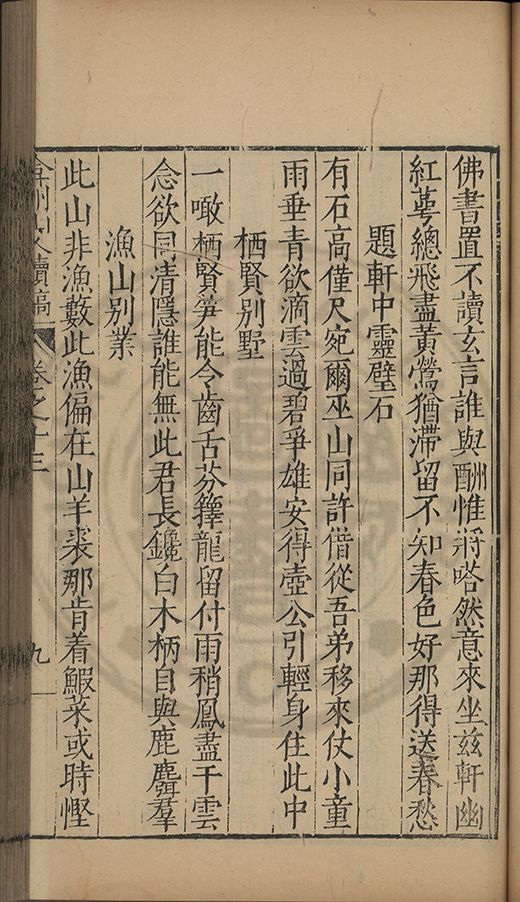 佛書置不讀玄言誰與酬惟將嗒然意來坐茲軒幽
紅萼總飛盡黃鶯猶滯留不知春色好那得送春愁
題軒中靈璧石
有石高僅尺宛爾巫山同許借從吾弟移來仗小童
雨垂青欲滴雲過碧爭雄安得壺公引輕身住此中
栖賢別墅
一噉栖賢笋能令齒舌芬籜龍留付雨稍鳳盡干雲
念欲同清隱誰能無此君長鑱白木柄自與鹿麛羣
漁山別業
此山非漁藪此漁偏在山羊裘那肯着鰕菜或時慳
弇州山人續稿 卷之十三 九